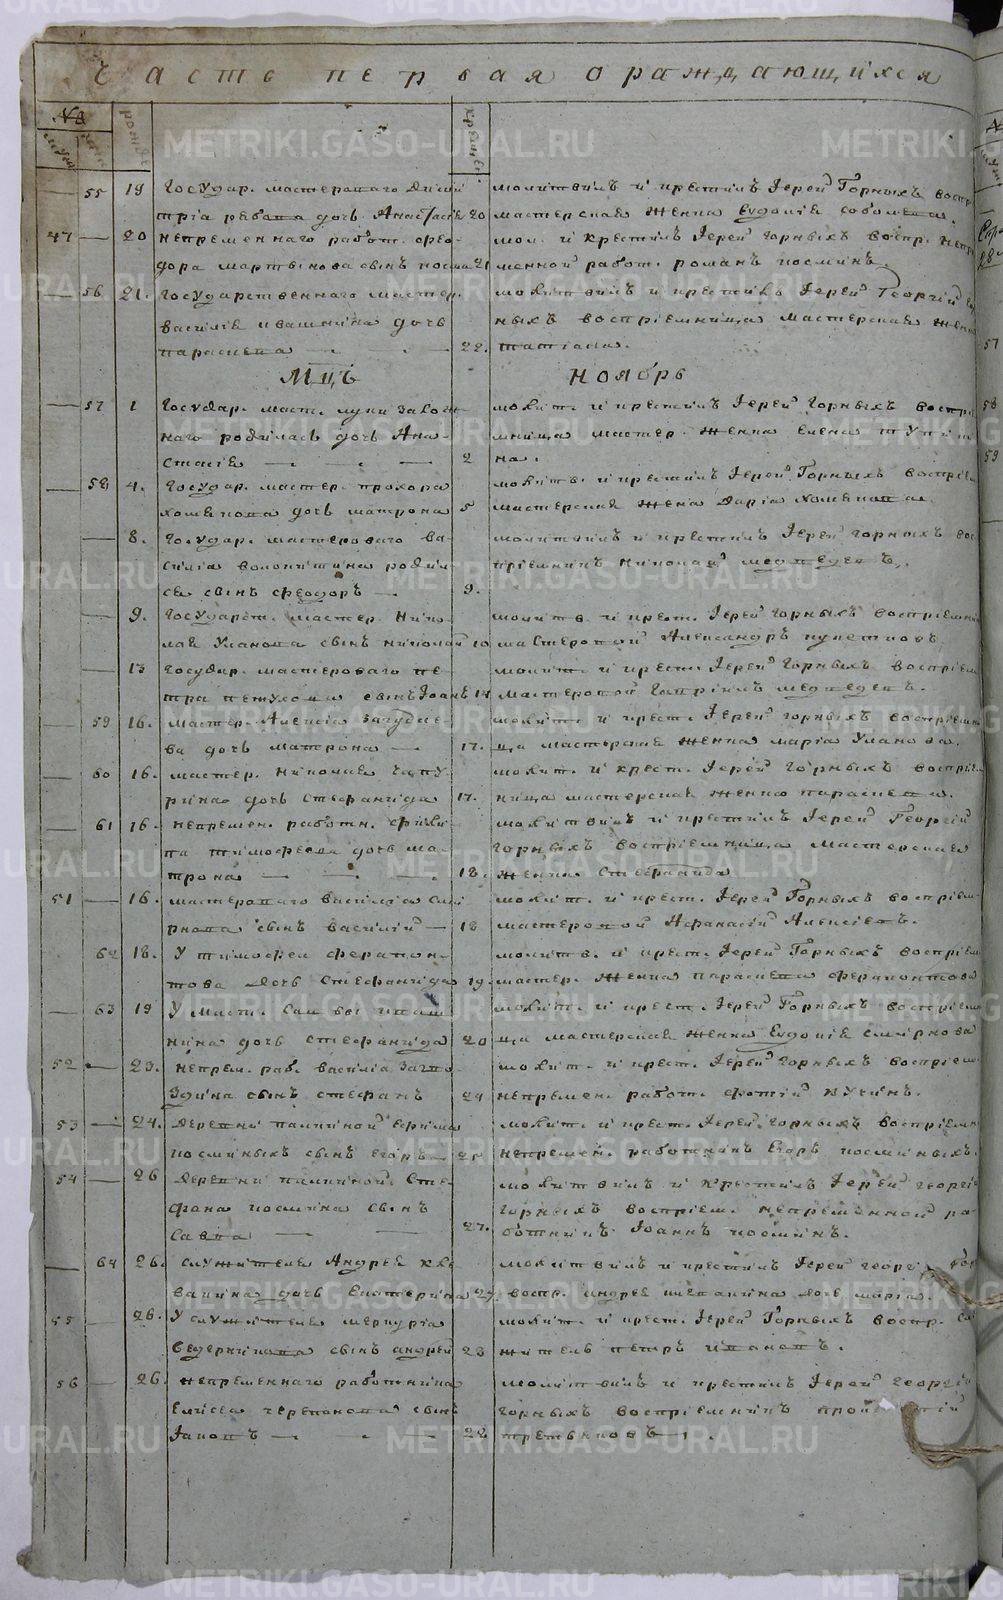 Часть первая о раждающихся
№
55 19 Государ. мастероваго Дими
трія дочь Анастасіе 20
молитвилъ и крестилъ Іерей Горныхъ воспр
мастерская женка Евдокіе
47 — 20 непременнаго работ. Фео
дора Мартынова сынъ 21
мол. и крестилъ Іерей Горныхъ воспр. непре
менной работ. Романъ Косминъ.
— 56 21. Государственнаго мастер.
Василіе Ивашкина дочь
Параскева — 22.
молитвилъ и крестилъ Іерей Георгій Гор
ныхъ воспріемница мастерская женка
Татіана.
Мцъ Ноябрь
— 57 1 Государ. маст. Луки
наго родилась дочь Ана
стасіе — 2
молит. и крестилъ Іерей Горныхъ воспріе
мница мастер. женка Елена
на.
— 58 4. Государ. мастер. Прохора
Хомякова дочь Матрона 5
молитв. и крестилъ Іерей Горныхъ воспріем
мастерская жена Дарія Хомякова.
— 8. Государ. мастероваго Ва
силіа Волокитина родил
се сынъ Феодоръ — 9.
молитвилъ и крестилъ Іерей Горныхъ вос
пріемникъ Николай Медведевъ.
— 9. Государст. мастер. Нико
лая Уланова сынъ Николай 10
молитв. и крест. Іерей Горныхъ воспріемни
мастеровой Александръ
— 13 Государ. мастероваго Пе
тра Петухова сынъ Іоанъ 14
молит. и крест. Іерей Горныхъ воспріем
мастеровой Гавріилъ Медведевъ.
— 59 16. мастер. Алексіа Загудае
ва дочь Матрона — 17.
молит. и крест. Іерей Горныхъ воспріемни
ца мастерская женка Маріа Уланова.
— 60 16. мастер. Николае Чапу
рина дочь Стефанида 17.
молит. и крест. Іерей Горныхъ воспріем
ница мастерская женка Параскева.
— 61 16. непремен. работн. Фили
па Тимофеева дочь Ма
трона — 18.
молитвилъ и крестилъ Іерей Георгій
Горныхъ воспріемница мастерская
женка Стефанида
51 — 16. мастероваго Василіа
сынъ Василій — 18
молит. и крест. Іерей Горныхъ воспріем
мастеровой Афанасій Алексіевъ.
62 18. У Тимофея Ферапон
това дочь Стефанида 19.
молитв. и крест. Іерей Горныхъ воспріем
мастер. женка Параскева Ферапонтова
— 63 19 У маст. Савы Иваш
нина дочь Стефанида 20
молит. и крест. Іерей Горныхъ воспріемни
ца мастерская женка Евдокіе Смирнова
52 — 23. непрем. раб. Василіа Загво
здина сынъ Стефанъ 24
молит. и крест. Іерей Горныхъ воспріем
непремен. работ. Фотій Кучинъ.
53 — 24. деревни Палкиной Ефима
Косминыхъ сынъ Егоръ 25
молит. и крест. Іерей Горныхъ воспріемн
непремен. работникъ Егоръ Косминыхъ.
54 — 26 деревни Палкиной Сте
фана Космина сынъ
Савва — 27.
молитвилъ и крестилъ Іерей Георгій
Горныхъ воспріем. непременной ра
ботникъ Іоаннъ Косминъ.
— 64 26. служителе Андрея
дочь Екатерина 27
молитвилъ и крестилъ Іерей Георгі Гор
воспр. дочь Маріа
55 26. У служителе Меркуріа
Ведерникова сынъ Андрей 28
молит. и крест. Іерей Горныхъ воспр. слу
житель Петръ Ивановъ.
56 — 26 непременнаго работника
Елисея Черепанова сынъ
Іаковъ — 28
молитвилъ и крестилъ Іерей Георгій
Горныхъ воспріемникъ
METRIKI.GASO-URAL.RU